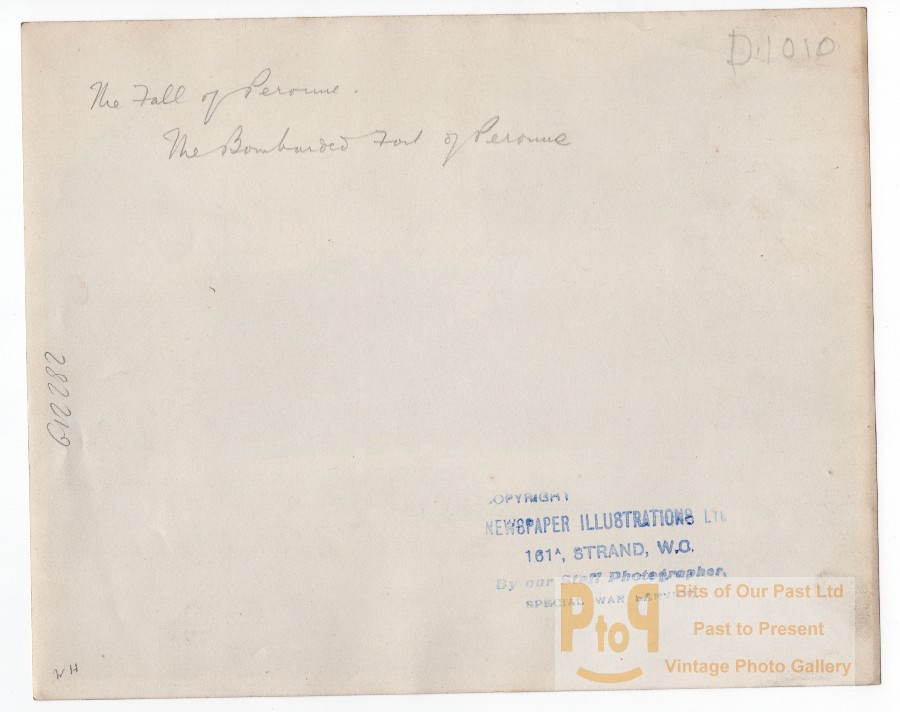 D.1010
The Fall of Peronne.
The Bombarded Fort of Peronne
G12282
COPYRIGHT
NEWSPAPER ILLUSTRATIONS LTD
161A, STRAND, W.C.
By our Staff Photographer,
SPECIAL WAR SERVICE
PtoP
Bits of Our Past Ltd
Past to Present
Vintage Photo Gallery
WH